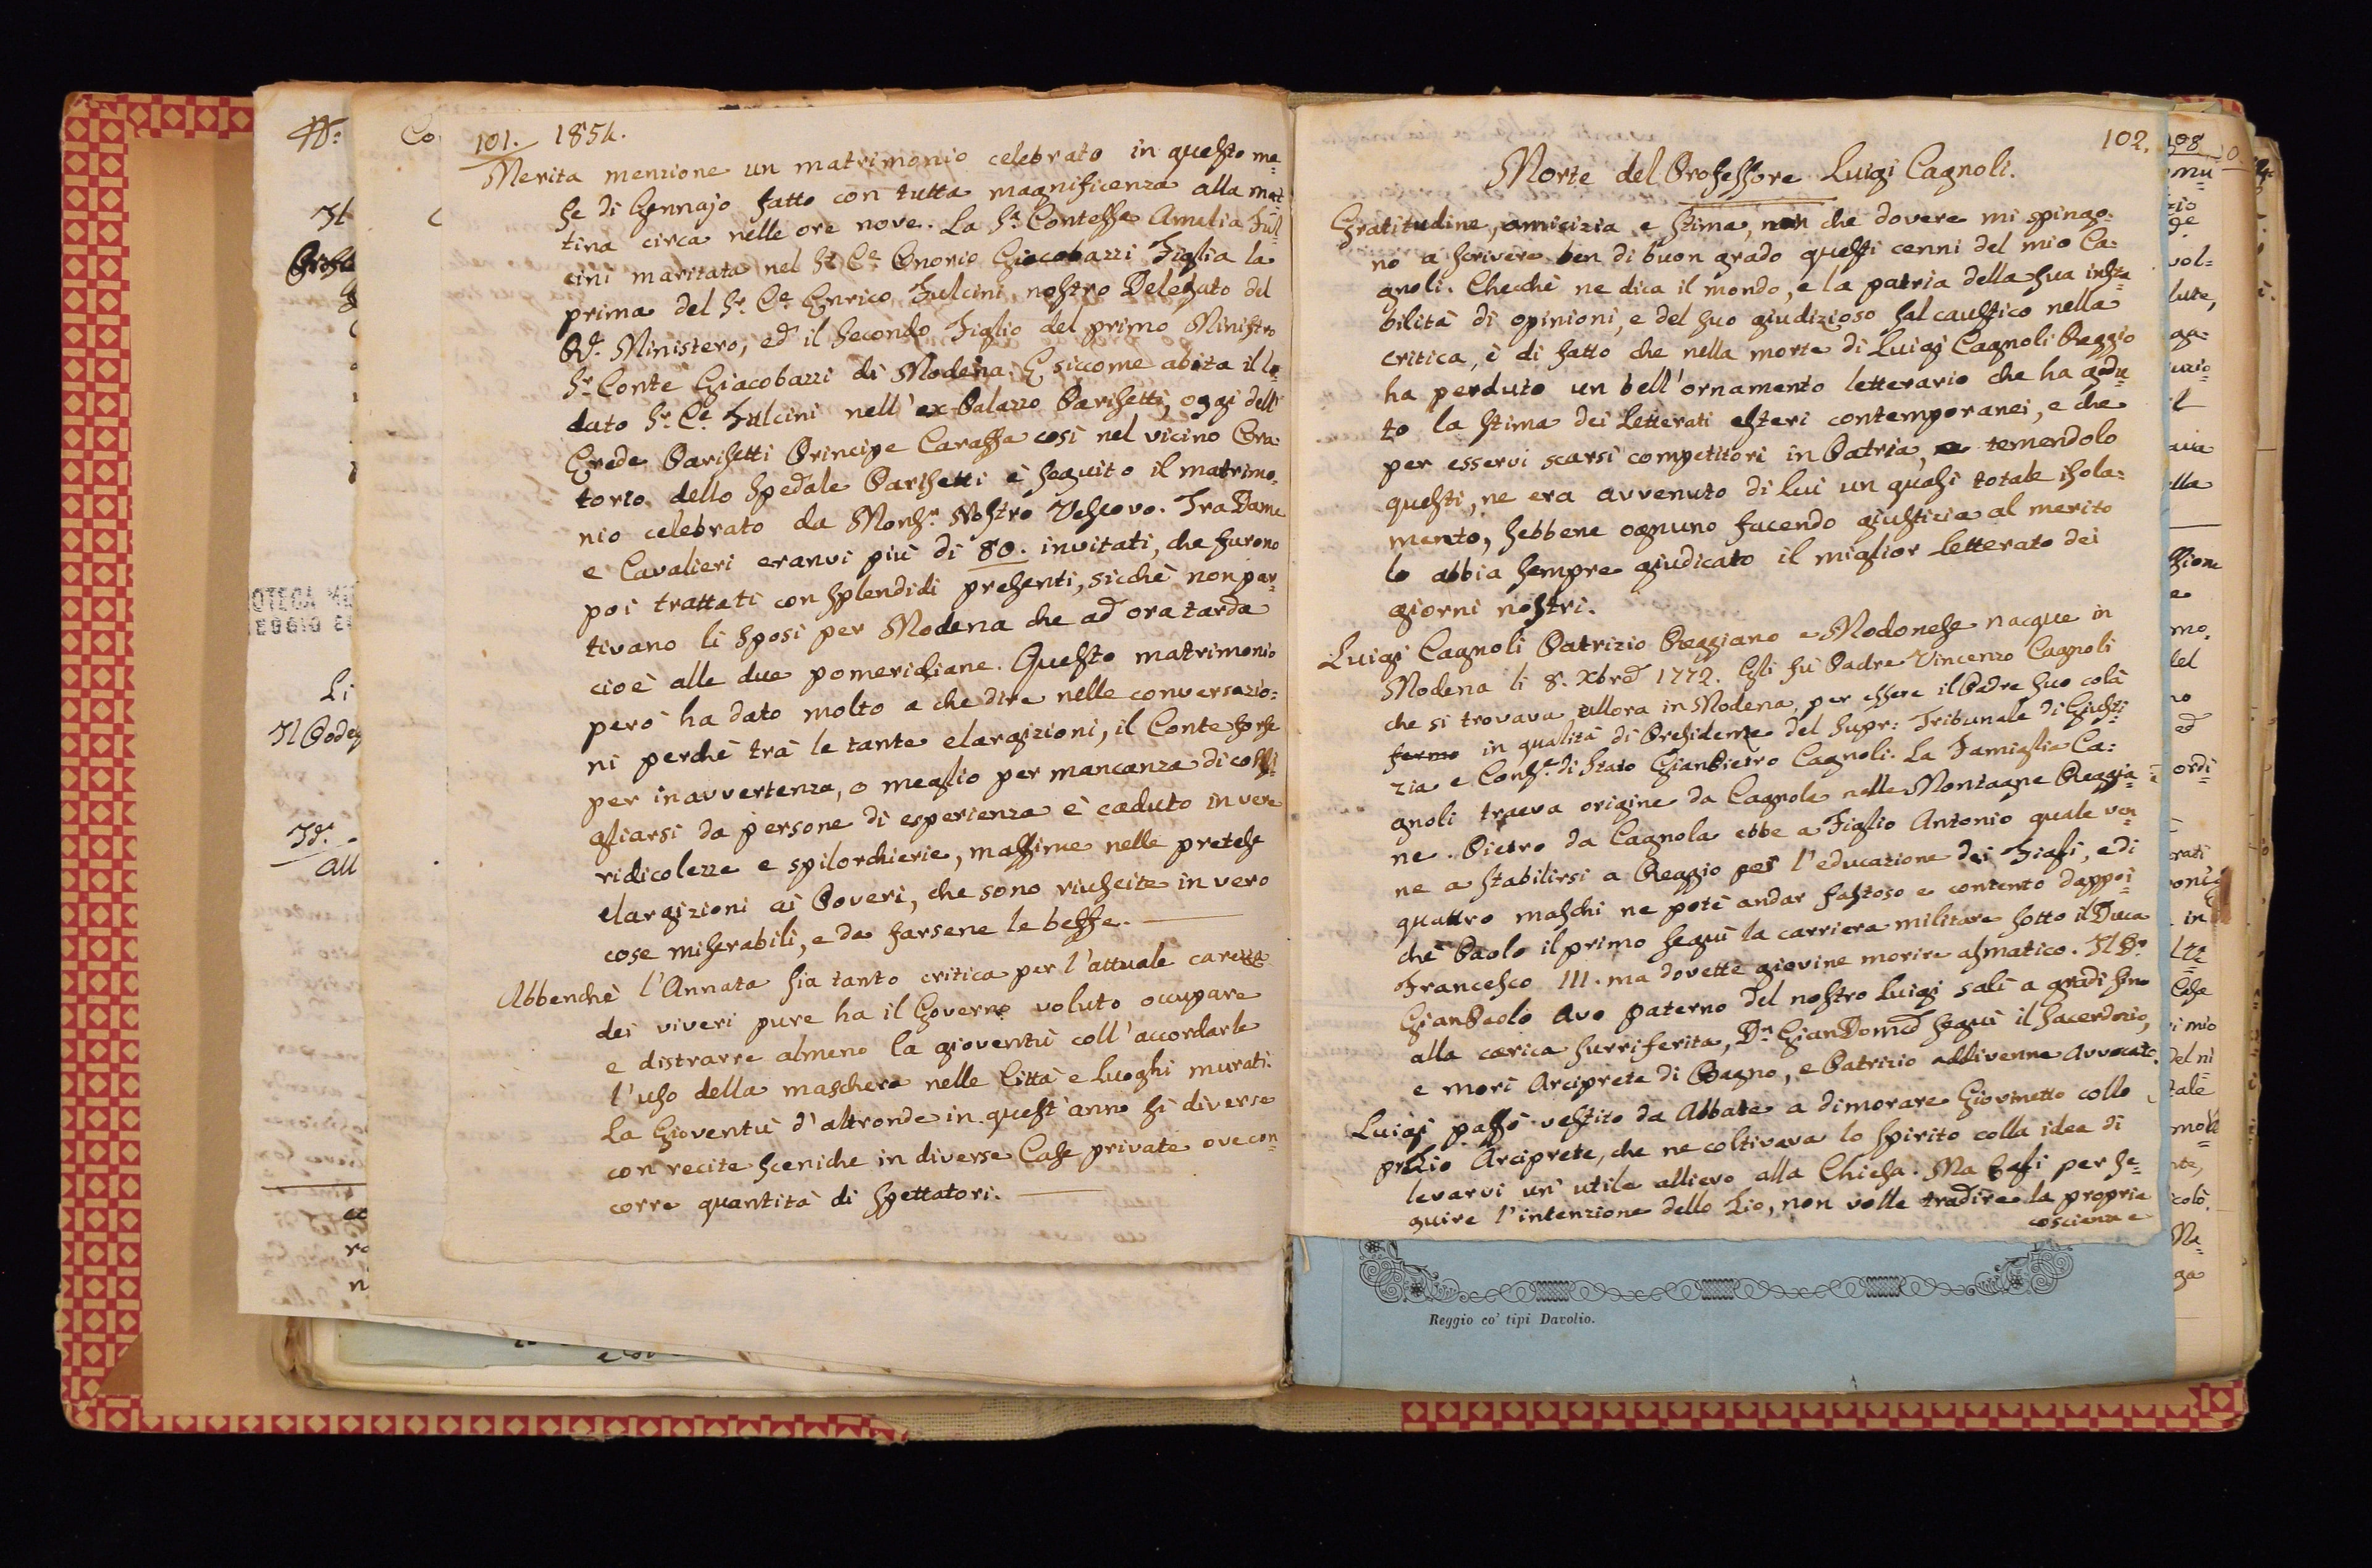 101. 1854.
Merita menzione un matrimonio celebrato in questo me=
se di Gennajo fatto con tutta magnificenza alla mat=
tina circa nelle ore nove. La Sra. Contessa Amalia Ful=
cini maritata nel Sr. Ce. Onorio Giacobazzi Figlia la
prima del Sr. Ce. Enrico Fulcini nostro Delegato del
Ministero, ed il secondo Figlio del primo Ministro
Sr. Conte Giacobazzi di Modena. E siccome abita il lo=
dato Sr. Ce. Fulcini nell'ex Palazzo Parisetti, oggi dell'
Erede Parisetti Principe Caraffa così nel vicino Ora=
torio dello Spedale Parisetti è seguito il matrimo=
nio celebrato da Monsr. Nostro Vescovo. Tra Dame
e Cavalieri eranvi più di 80. invitati, che furono
poi trattati con splendidi presenti, sicchè non par=
tivano li Sposi per Modena che ad ora tarda
cioè alle due pomeridiane. Questo matrimonio
però ha dato molto a che dire nelle conversazio=
ni perchè trà le tante elargizioni, il Conte forse
per inavvertenza, o meglio per mancanza di consi=
gliarsi da persone di esperienza è caduto in vere
ridicolezze e spilorchierie, massime nelle pretese
elargizioni ai Poveri, che sono riuscite in vero
cose miserabili, e da farsene le beffe.
Abbenchè l'Annata sia tanto critica per l'attuale carezza
dei viveri pure ha il Governo voluto occupare
e distrarre almeno la gioventù coll'accordarle
l'uso della maschera nelle Città e luoghi murati.
La Gioventù d'altronde in quest'anno si diverse
con recite sceniche in diverse Case private ove con=
corre quantità di Spettatori.
102.
Morte del Professore Luigi Cagnoli.
Gratitudine, amicizia e stima, non che dovere mi spingo=
no a scrivere ben di buon grado questi cenni del mio Ca=
gnoli. Checchè ne dica il mondo, e la patria della sua insta=
bilità di opinioni, e del suo giudizioso sal caustico nella
critica, è di fatto che nella morte di Luigi Cagnoli Reggio
ha perduto un bell'ornamento letterario che ha godu=
to la stima dei Letterati esteri contemporanei, e che
per esservi scarsi competitori in Patria, temendolo
questi, ne era avvenuto di lui un quasi totale isola=
mento, sebbene ognuno facendo giustizia al merito
lo abbia sempre giudicato il miglior letterato dei
giorni nostri.
Luigi Cagnoli Patrizio Reggiano e Modonese nacque in
Modena li 8. Xbre 1772. Gli fù Padre Vincenzo Cagnoli
che si trovava allora in Modena, per essere il Padre suo colà
fermo in qualità di Presidente del Supr: Tribunale di Giusti=
zia e Consre. di Stato GianPietro Cagnoli. La Famiglia Ca=
gnoli traeva origine da Cagnola nelle Montagne Reggia=
ne. Pietro da Cagnola ebbe a Figlio Antonio quale ven=
ne a stabilirsi a Reggio per l'educazione dei Figli, e di
quattro maschi ne potè andar fastoso e contento dappoi=
chè Paolo il primo seguì la carriera militare sotto il Duca
Francesco III. ma dovette giovine morire asmatico. Il Sr.
GianPaolo Avo paterno del nostro Luigi salì a gradi sino
alla carica surriferita, Dn. GianDomco seguì il sacerdozio,
e morì Arciprete di Bagno, e Patrizio addivenne Avvocato.
Luigi passò vestito da Abbate a dimorare Giovinetto collo
Zio Arciprete, che ne coltivava lo spirito colla idea di
levarvi un'utile allievo alla Chiesa. Ma Egli per se=
guire l'intenzione dello Zio, non volle tradire la propria
coscienza e
Reggio co' tipi Davolio.